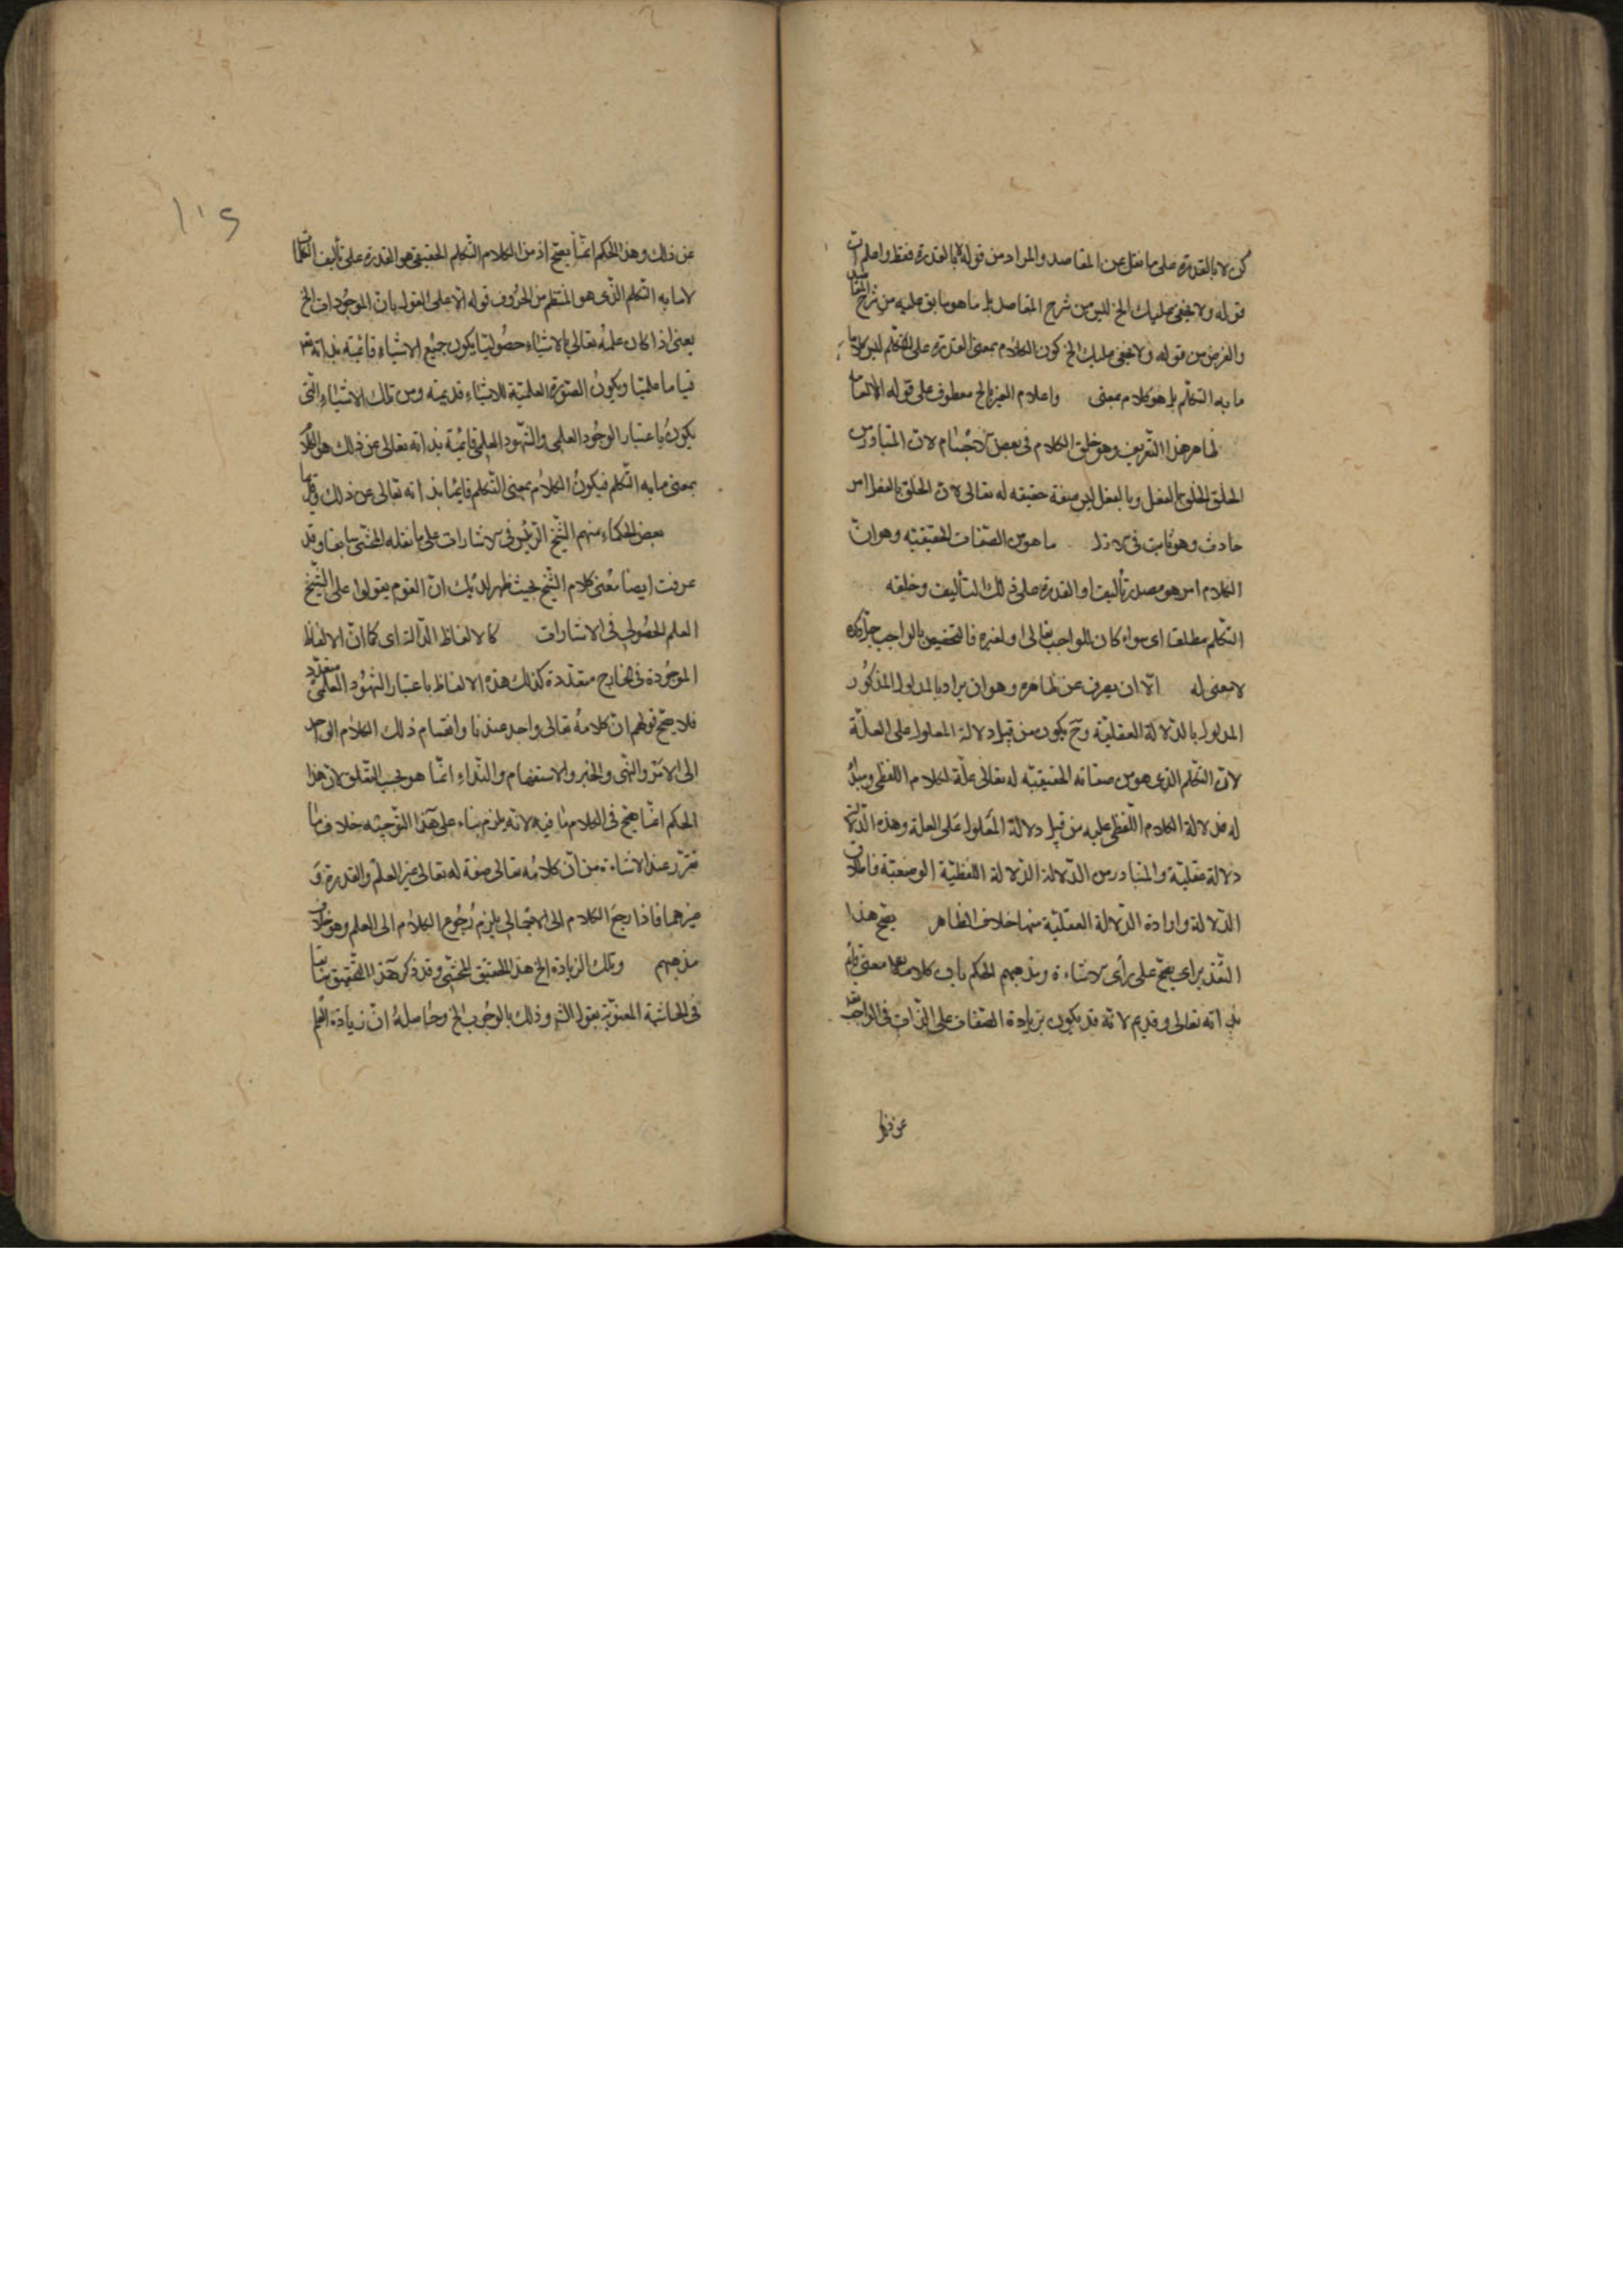 كن لا بالقدرة على ما نقل عن المقاصد والمراد من قوله لا بالقدرة فقط واعلم ان
قوله ولا يخفى عليك الخ ليس من شرح المقاصد بل ما هو سابق عليه من شرح المقاصد
والغرض من قوله ولا يخفى عليك الخ كون الكلام بمعنى القدرة على التكلم ليس كلاما
ما به التكلم بل هو كلام بمعنى واعلام الغير الخ معطوف على قوله الالقاء
ظاهر هذا التعريف وهو خلق الكلام فى بعض الاجسام لان المتبادر من
الخلق الخلق بالفعل وبالفعل ليس صفة حقيقه له تعالى لان الخلق بالفعل امر
حادث وهو ثابت فى الازل ما هو من الصفات الحقيقيه وهو ان
الكلام امر هو مصدر تأليف او القدرة على ذلك التأليف وخلقه
التكلم مطلقا اى سواء كان للواجب تعالى او لغيره فالتخصيص بالواجب جل ذكره
لا معنى له الا ان يصرف عن ظاهره وهو ان يراد بالمدلول المذكور
المدلول بالدلالة العقلية وح يكون من قبيل دلالة المعلول على العلة
لان التكلم الذى هو من صفاته الحقيقيه له تعالى علة للكلام اللفظى ومبدأ
له فدلالة الكلام اللفظى عليه من قبيل دلالة المعلول على العلة وهذه الدلالة
دلالة عقلية والمتبادر من الدلالة الدلالة اللفظية الوضعية فاطلاق
الدلالة وارادة الدلالة العقلية منها خلاف الظاهر يصح هذا
التقدير اى يصح على رأى الاشاعرة ومذهبهم الحكم بان كلامه تعالى معنى قائم
بذاته تعالى وقديم لانه قد يكون بزيادة الصفات على الذات فى الواجب تعالى
عن ذلك
١١٥
عن ذلك وهذا الحكم انما يصح اذ من الكلام التكلم الحقيقى هو القدرة على تأليف الكلمات
لا ما به التكلم الذى هو المنتظم من الحروف قوله الا على القول بان الموجودات الخ
يعنى اذا كان علمه تعالى بالاشياء حصوليا يكون جميع الاشياء قائمة بذاته تعالى
قياما علميا ويكون الصورة العلمية للاشياء قديمة ومن تلك الاشياء التى
يكون باعتبار الوجود العلمى والشهود العلمى قائمة بذاته تعالى عن ذلك هو الكلام
بمعنى ما به التكلم فيكون الكلام بمعنى التكلم قايما بذاته تعالى عن ذلك
بعض الحكماء منهم الشيخ الرئيس فى الاشارات على ما نقله المحشى سابقا وقد
عرفت ايضا معنى كلام الشيخ بحيث ظهر لديك ان القوم يقولوا على الشيخ
العلم الحصولى فى الاشارات كالالفاظ الدالة اى كما ان الالفاظ
الموجودة فى الخارج متعددة كذلك هذه الالفاظ باعتبار الشهود العلمى متعدد
فلا يصح قولهم ان كلامه تعالى واحد عندنا وانقسام ذلك الكلام الواحد
الى الامر والنهى والخبر والاستفهام والنداء انما هو بحسب التعلق لان هذا
الحكم انما يصح فى الكلام ما فيه لانه يلزم بناء على هذا التوجيه خلاف ما
تقرر عند الاشاعرة من ان كلامه تعالى صفة له تعالى غير العلم والقدرة و
غيرهما فاذا رجع الكلام الى الاجمالى يلزم رجوع الكلام الى العلم وهو خلاف
مذهبهم وتلك الزيادة الخ هذا التحقيق للمحشى وقد ذكر هذا التحقيق سابقا
فى الحاشية المعنونة بقول الشر وذلك بالوجوب الخ وحاصله ان زيادة العلم